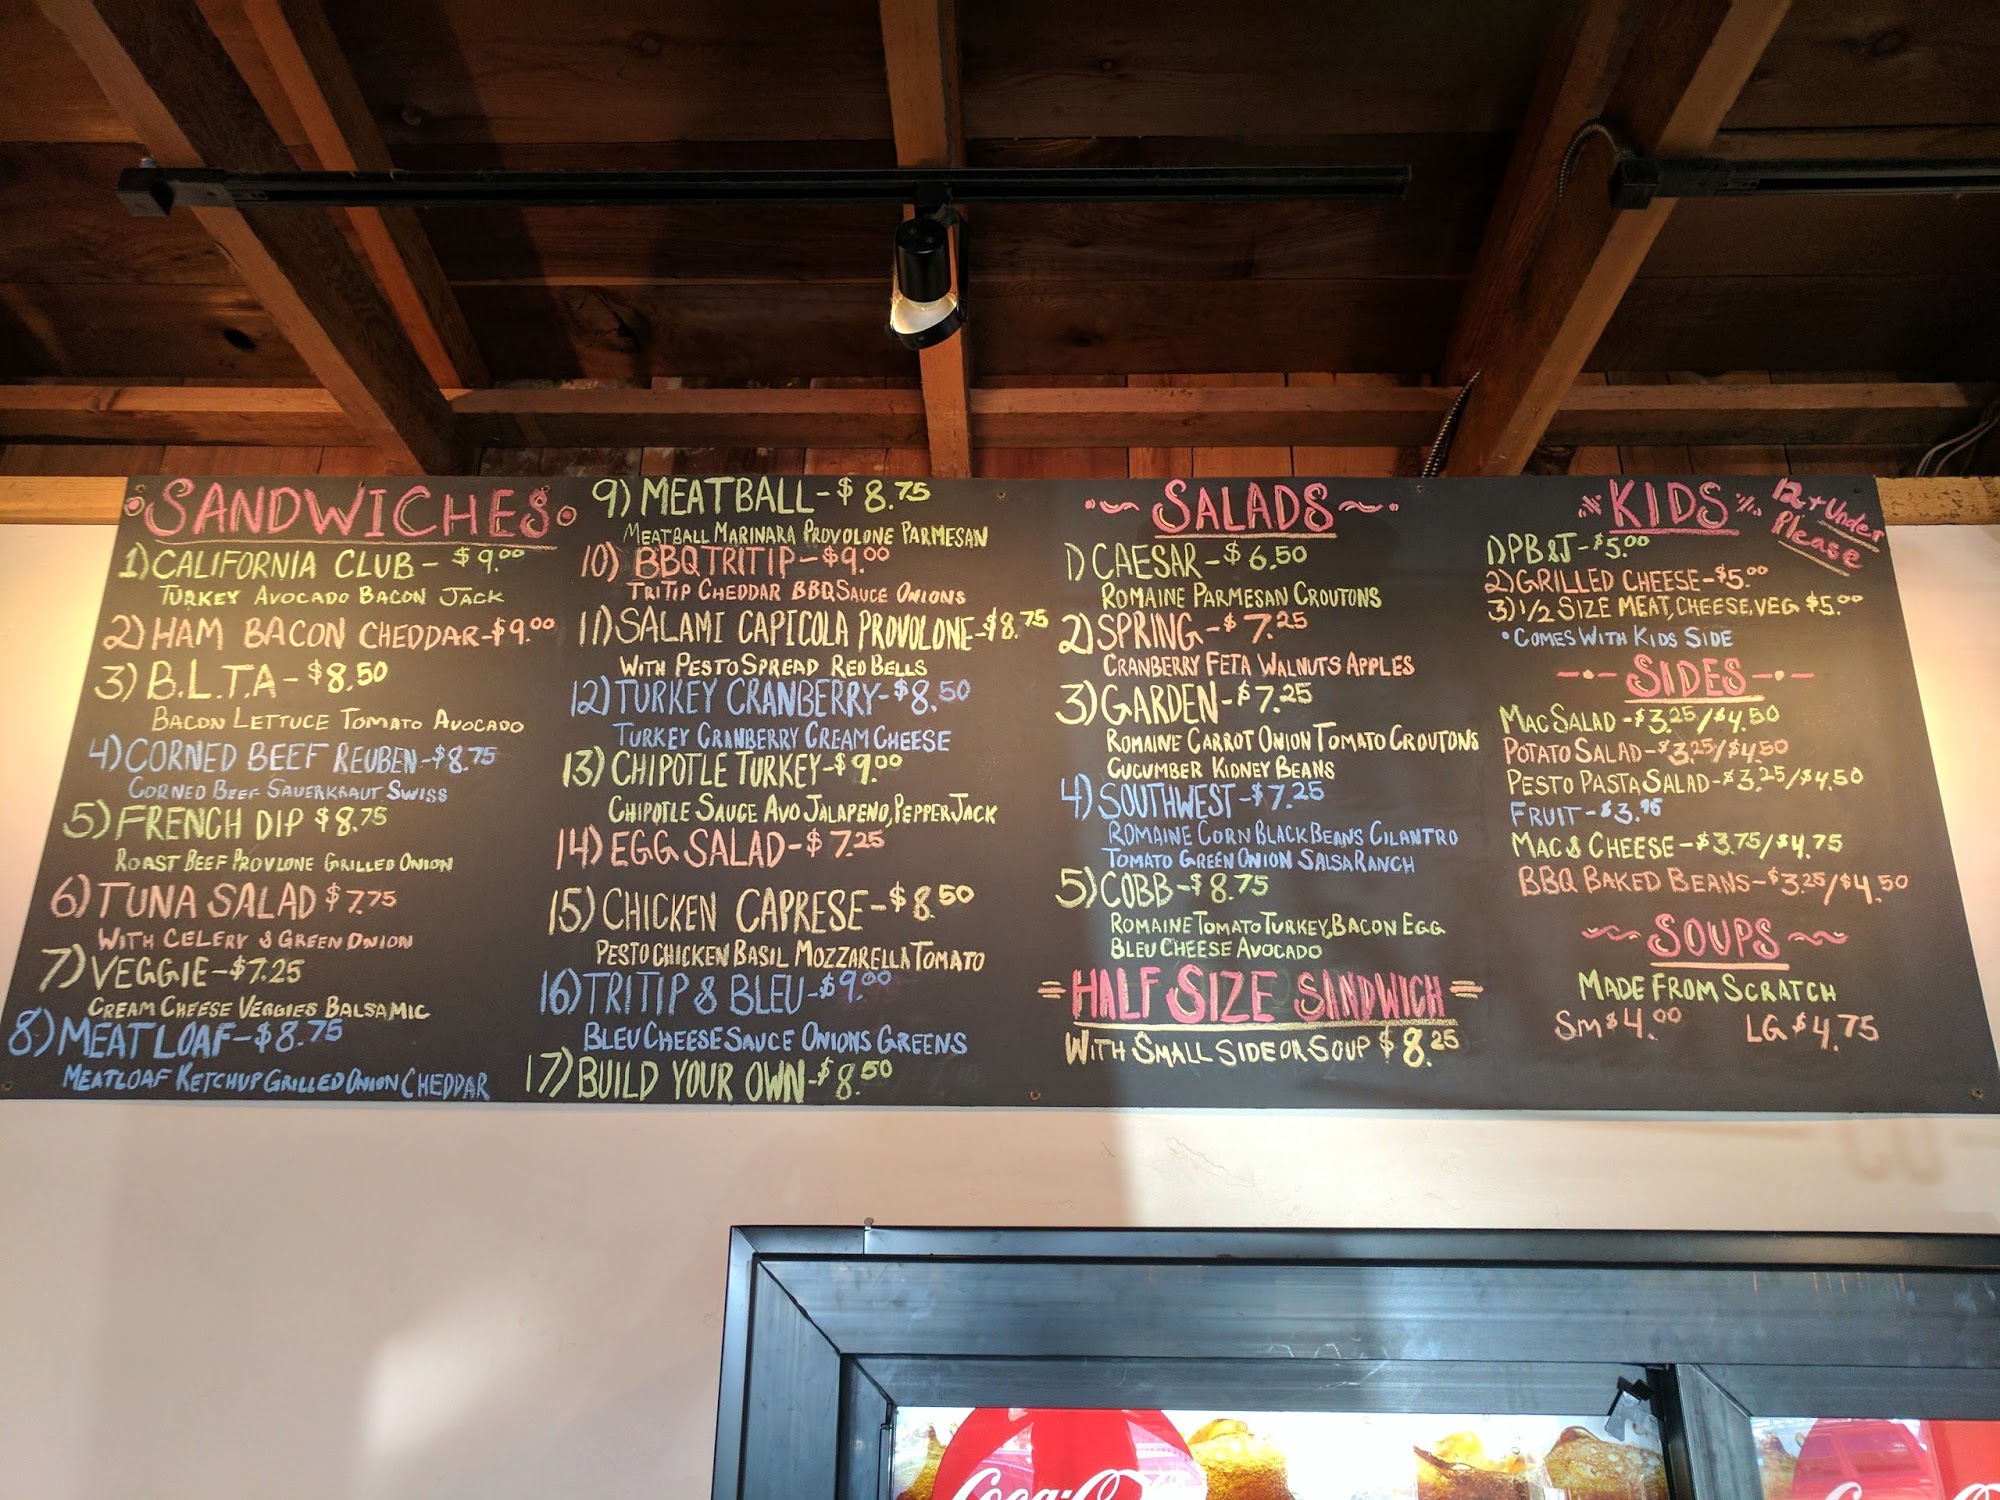 SANDWICHES
1) CALIFORNIA CLUB - $9.00
TURKEY AVOCADO BACON JACK
2) HAM BACON CHEDDAR - $9.00
3) B.L.T.A - $8.50
BACON LETTUCE TOMATO AVOCADO
4) CORNED BEEF REUBEN - $8.75
CORNED BEEF SAUERKRAUT SWISS
5) FRENCH DIP $8.75
ROAST BEEF PROVLONE GRILLED ONION
6) TUNA SALAD $7.75
WITH CELERY & GREEN ONION
7) VEGGIE - $7.25
CREAM CHEESE VEGGIES BALSAMIC
8) MEATLOAF - $8.75
MEATLOAF KETCHUP GRILLED ONION CHEDDAR
9) MEATBALL - $8.75
MEATBALL MARINARA PROVOLONE PARMESAN
10) BBQ TRITIP - $9.00
TRITIP CHEDDAR BBQ SAUCE ONIONS
11) SALAMI CAPICOLA PROVOLONE - $8.75
WITH PESTO SPREAD RED BELLS
12) TURKEY CRANBERRY - $8.50
TURKEY CRANBERRY CREAM CHEESE
13) CHIPOTLE TURKEY - $9.00
CHIPOTLE SAUCE AVO JALAPENO, PEPPER JACK
14) EGG SALAD - $7.25
15) CHICKEN CAPRESE - $8.50
PESTO CHICKEN BASIL MOZZARELLA TOMATO
16) TRITIP & BLEU - $9.00
BLEU CHEESE SAUCE ONIONS GREENS
17) BUILD YOUR OWN - $8.50
SALADS
1) CAESAR - $6.50
ROMAINE PARMESAN CROUTONS
2) SPRING - $7.25
CRANBERRY FETA WALNUTS APPLES
3) GARDEN - $7.25
ROMAINE CARROT ONION TOMATO CROUTONS
CUCUMBER KIDNEY BEANS
4) SOUTHWEST - $7.25
ROMAINE CORN BLACK BEANS CILANTRO
TOMATO GREEN ONION SALSA RANCH
5) COBB - $8.75
ROMAINE TOMATO TURKEY, BACON EGG
BLEU CHEESE AVOCADO
= HALF SIZE SANDWICH =
WITH SMALL SIDE OR SOUP $8.25
KIDS
12 + Under
Please
1) PB & J - $5.00
2) GRILLED CHEESE - $5.00
3) 1/2 SIZE MEAT, CHEESE, VEG $5.00
• COMES WITH KIDS SIDE
SIDES
MAC SALAD - $3.25/$4.50
POTATO SALAD - $3.25/$4.50
PESTO PASTA SALAD - $3.25/$4.50
FRUIT - $3.95
MAC & CHEESE - $3.75/$4.75
BBQ BAKED BEANS - $3.25/$4.50
SOUPS
MADE FROM SCRATCH
SM $4.00 LG $4.75